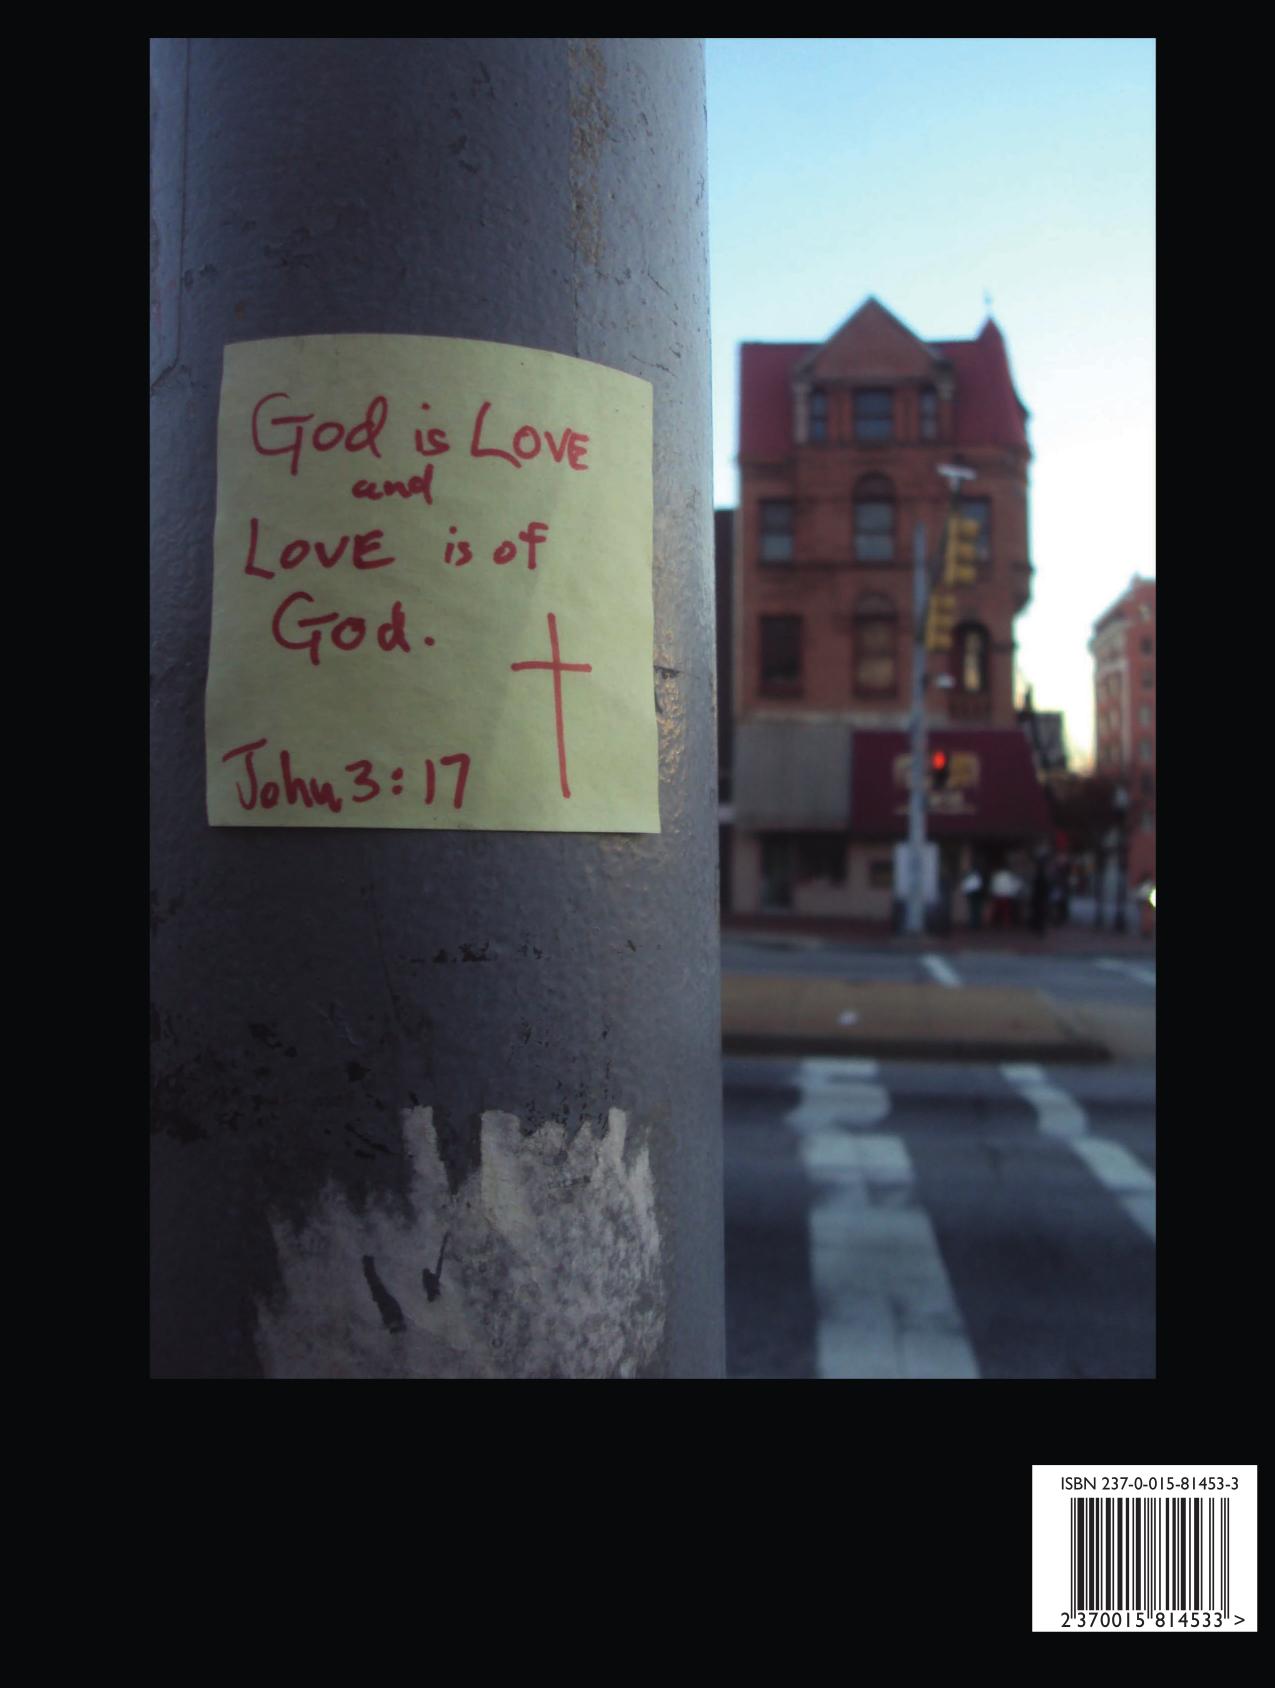 God is LOVE
and
LOVE is of
God.
John 3:17
ISBN 237-0-015-81453-3
2 370015 814533 >